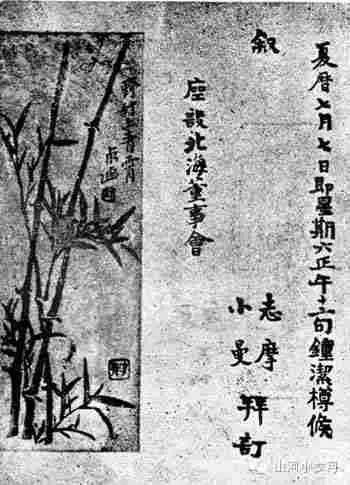 夏曆七月七日即星期六正午十二句鐘潔樽候
叙
座設北海董事會
志摩
小曼
拜訂
青霄
山河小岁月